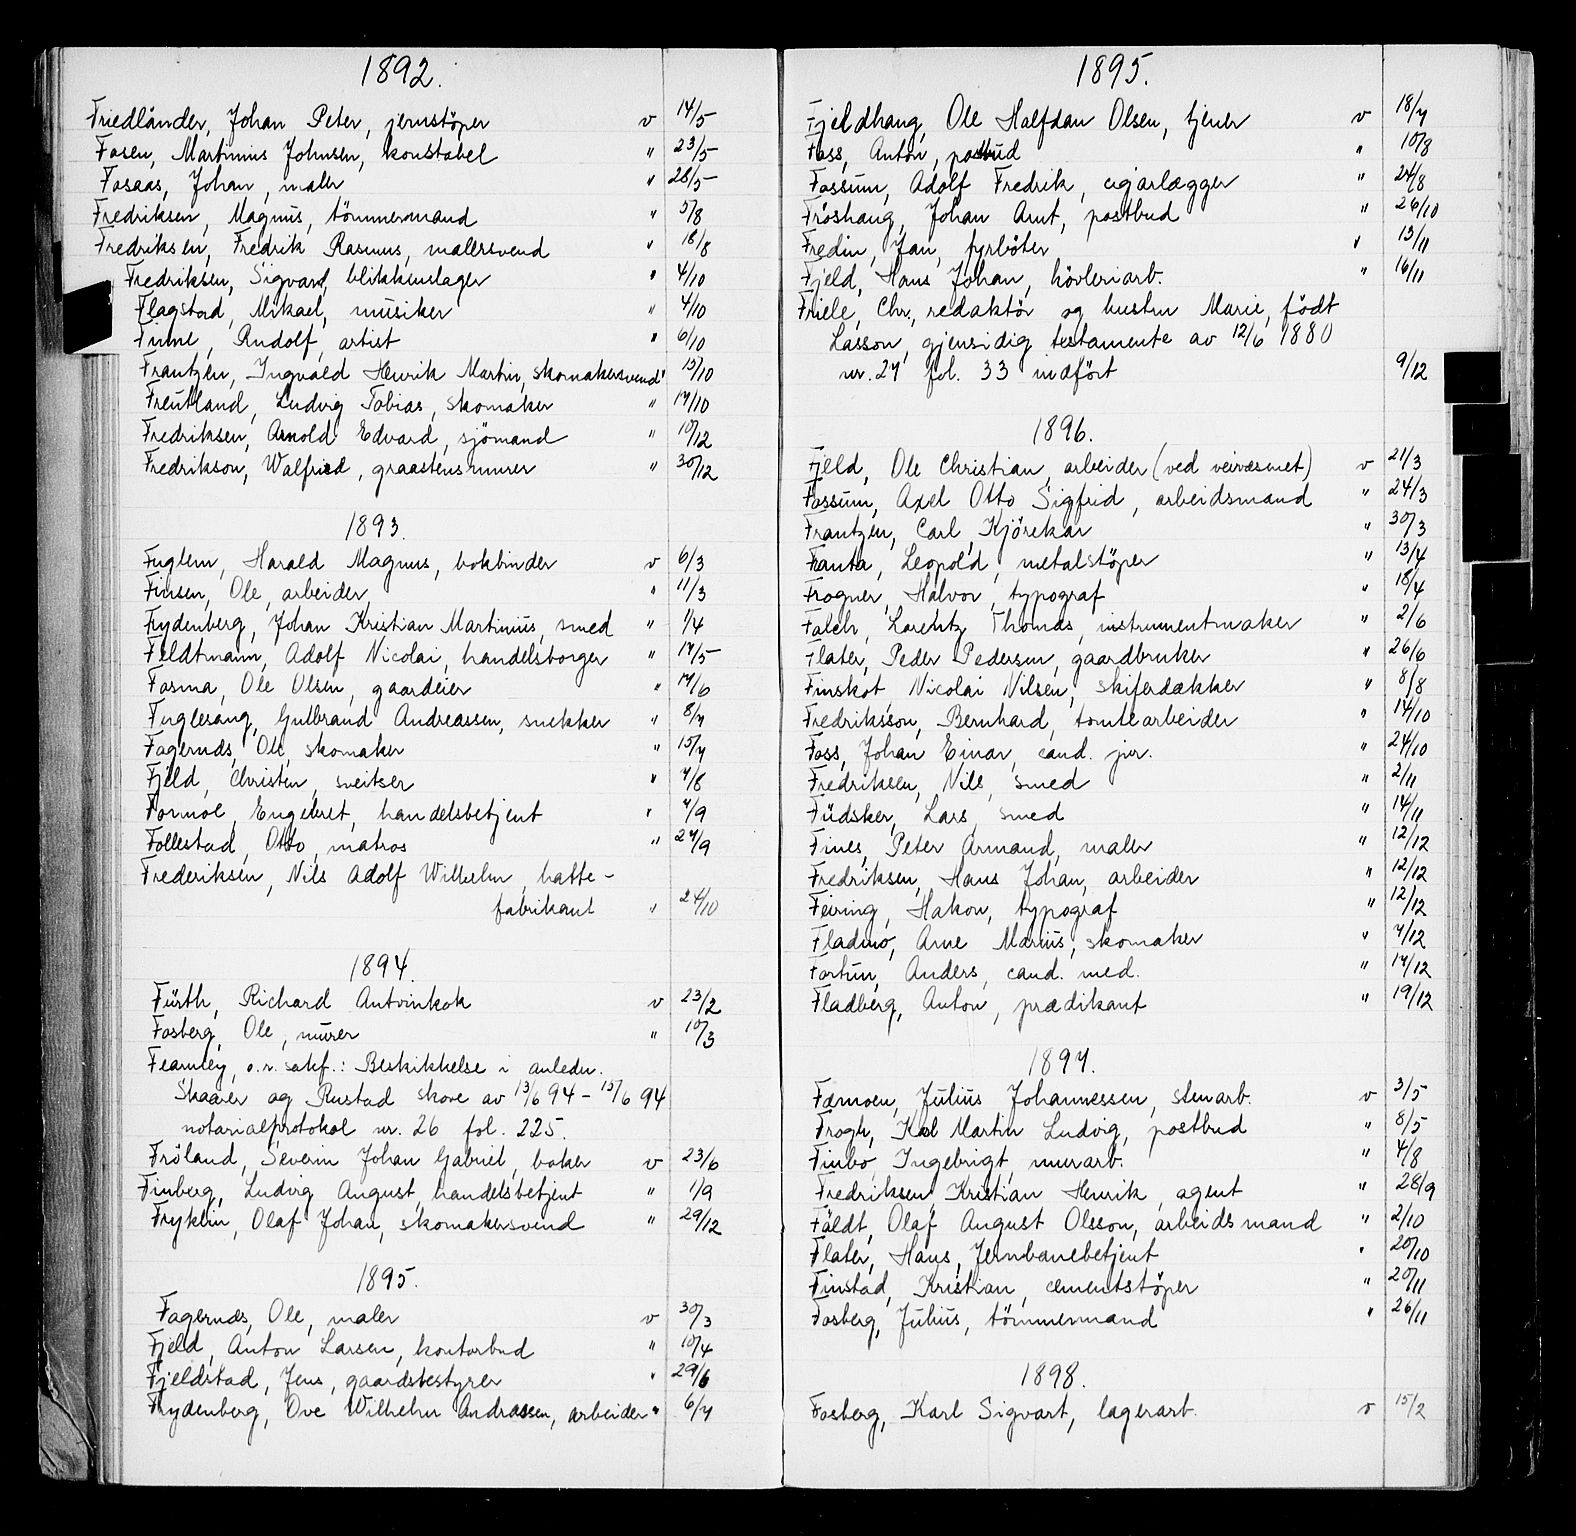 1892.
Friedländer, Johan Peter, jernstöper v 14/5
Fosen, Martinius Johnsen, konstabel " 23/5
Fosaas, Johan, maler " 28/5
Fredriksen, Magnus, tömmermand " 5/8
Fredriksen, Fredrik Rasmus, malersvend " 18/8
Fredriksen, Sigvard, blikkenslager " 4/10
Flagstad, Mikael, musiker " 4/10
Rudolf, artist " 6/10
Frantzen, Ingvald Henrik Martin, skomakersvend " 15/10
Freutland, Ludvig Tobias, skomaker " 17/10
Fredriksen, Arnold Edvard, sjömand " 10/12
Fredrikson, Walfried, graastensmurer " 30/12
1893.
Fuglem, Harald Magnus, bokbinder v 6/3
Finsen, Ole, arbeider " 11/3
Frydenberg, Johan Kristian Martinius, smed " 1/4
Feldtmann, Adolf Nicolai, handelsborger " 17/5
Fosma, Ole Olsen, gaardeier " 17/6
Fuglesang, Gulbrand Andreassen, snekker " 8/7
Fagernæs, Ole, skomaker " 15/7
Fjeld, Christen, sveitser " 7/8
Formoe, Engebret, handelsbetjent " 7/9
Follestad, Otto, matros " 27/9
Frederiksen, Nils Adolf Wilhelm, hatte-
fabrikant " 24/10
1894.
Fürth, Richard Antvinkok v 23/2
Fosberg, Ole, murer " 10/3
Fearnley, o.r. sakf.: Beskikkelse i anledn.
Skaarer og Rustad skove av 13/6 94 - 15/6 94
notarialprotokol nr. 26 fol. 225.
Fröland, Severin Johan Gabriel, baker v 23/6
Finberg, Ludvig August, handelsbetjent " 1/9
Fryklin, Olaf Johan, skomakersvend " 29/12
1895.
Fagernæs, Ole, maler v 30/3
Fjeld, Anton Larsen, kontorbud " 10/4
Fjeldstad, Jens, gaardsbestyrer " 29/6
Frydenberg, Ove Wilhelm Andreassen, arbeider " 6/7
1895.
Fjeldhaug, Ole Halfdan Olsen, tjener v 18/7
Foss, Anton, postbud " 10/8
Fossum, Adolf Fredrik, cigarlægger " 24/8
Fröshaug, Johan Arnt, postbud " 26/10
Fredin, Jan, fyrböter " 13/11
Fjeld, Hans Johan, hövleriarb. " 16/11
Friele, Chr., redaktör og hustru Marie, födt
Lasson, gjensidig testamente av 12/6 1880
nr. 27 fol. 33 indfört 9/12
1896.
Fjeld, Ole Christian, arbeider (ved veivæsenet) v 21/3
Fossum, Axel Otto Sigfrid, arbeidsmand " 24/3
Frantzen, Carl, Kjörekar " 30/3
Franta, Leopold, metalstöper " 13/4
Frogner, Halvor, typograf " 18/4
Falch, Lorentz Thomas, instrumentmaker " 2/6
Flater, Peder Pedersen, gaardbruker " 26/6
Finskot Nicolai Nilsen, skiferdækker " 8/8
Fredriksson, Bernhard, tomtearbeider " 14/10
Foss, Johan Einar, cand. jur. " 24/10
Fredriksen, Nils, smed " 2/11
Füdsker, Lars, smed " 14/11
Fines, Peter Armand, maler " 12/12
Fredriksen, Hans Johan, arbeider " 12/12
Feiring, Hakon, typograf " 12/12
Fladmo, Arne Marius, skomaker " 7/12
Fortun, Anders, cand. med. " 17/12
Fladberg, Anton, prædikant " 19/12
1897.
Færmoen, Julius Johannessen, stenarb. v 3/5
Frogh, Karl Martin Ludvig, postbud " 8/5
Finbo Ingebrigt, murarb. " 4/8
Fredriksen Kristian Henrik, agent " 28/9
Fäldt, Olaf August Olsson, arbeidsmand " 2/10
Flater, Hans, Jernbanebetjent " 20/10
Finstad, Kristian, cementstöper " 20/11
Fosberg, Julius, tömmermand " 26/11
1898.
Fosberg, Karl Sigvart, lagerarb. v 15/2